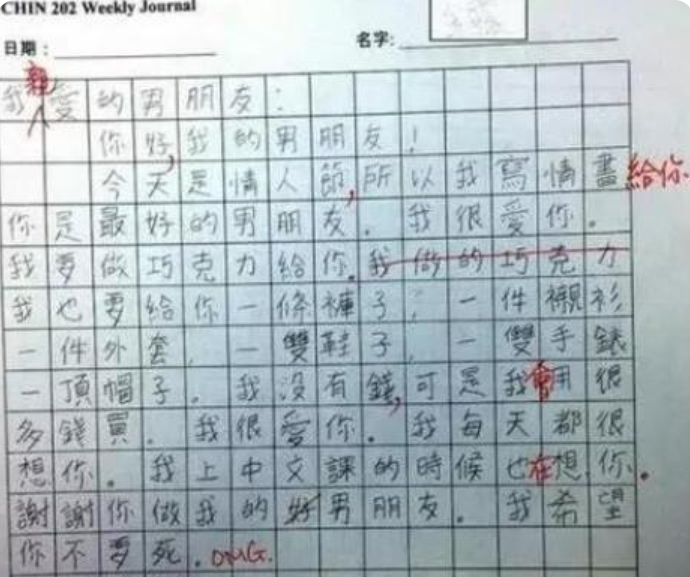 CHIN 202 Weekly Journal
日期： 名字：
我親愛的男朋友：
你好，我的男朋友！
今天是情人節，所以我寫情書給你
你是最好的男朋友。我很愛你。
我要做巧克力給你。我做的巧克力
我也要給你一條褲子，一件襯衫
一件外套，一雙鞋子，一雙手錶
一頂帽子。我沒有錢，可是我會用很
多錢買。我很愛你。我每天都很
想你。我上中文課的時候也在想你。
謝謝你做我的好男朋友。我希望
你不要死。OMG.